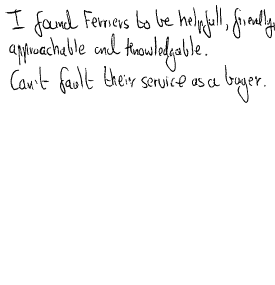 I found Ferriers to be helpfull, friendly,
approachable and knowledgable.
Can't fault their service as a buyer.